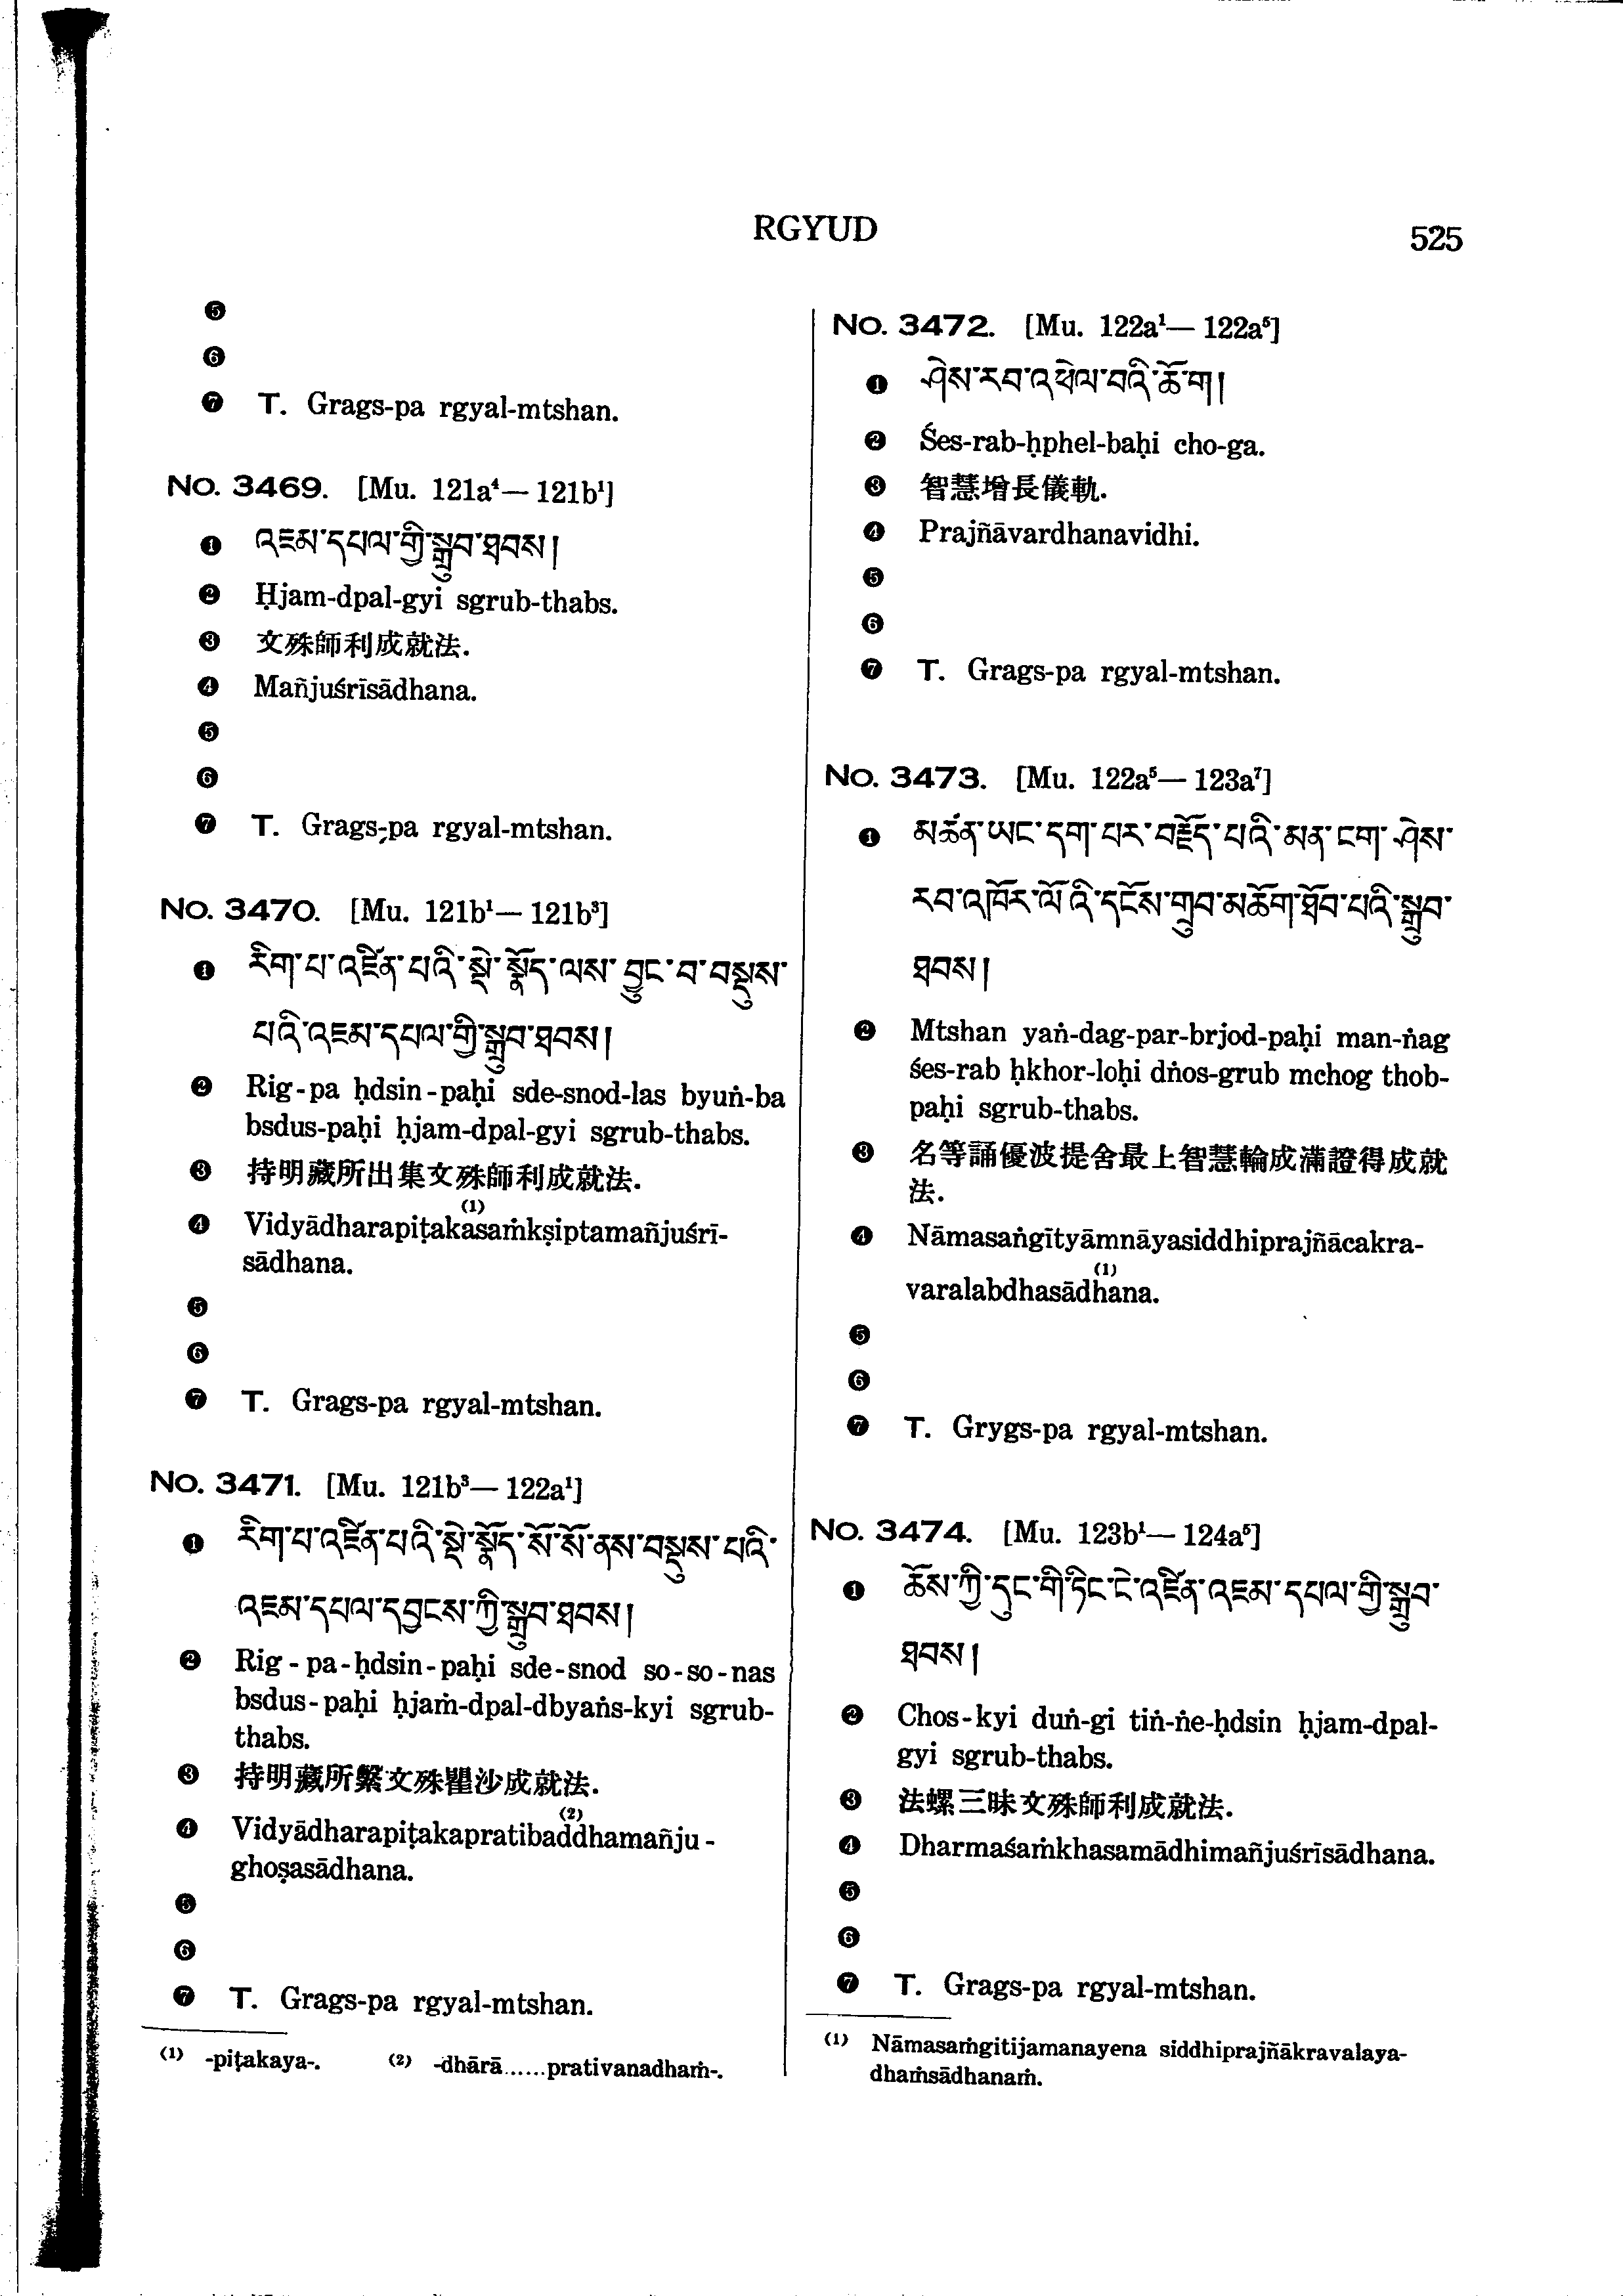 RGYUD
525
❺
❻
❼ T. Grags-pa rgyal-mtshan.
No. 3469. [Mu. 121a⁴— 121b¹]
❶ འཇམ་དཔལ་གྱི་སྒྲུབ་ཐབས།
❷ Ḥjam-dpal-gyi sgrub-thabs.
❸ 文殊師利成就法.
❹ Mañjuśrīsādhana.
❺
❻
❼ T. Grags-pa rgyal-mtshan.
No. 3470. [Mu. 121b¹— 121b³]
❶ རིག་པ་འཛིན་པའི་སྡེ་སྣོད་ལས་བྱུང་བ་བསྡུས་
པའི་འཇམ་དཔལ་གྱི་སྒྲུབ་ཐབས།
❷ Rig-pa ḥdsin-paḥi sde-snod-las byuṅ-ba
bsdus-paḥi ḥjam-dpal-gyi sgrub-thabs.
❸ 持明藏所出集文殊師利成就法.
❹ Vidyādharapiṭakasaṁkṣiptamañjuśrī-⁽¹⁾
sādhana.
❺
❻
❼ T. Grags-pa rgyal-mtshan.
No. 3471. [Mu. 121b³— 122a¹]
❶ རིག་པ་འཛིན་པའི་སྡེ་སྣོད་སོ་སོ་ནས་བསྡུས་པའི་
འཇམ་དཔལ་དབྱངས་ཀྱི་སྒྲུབ་ཐབས།
❷ Rig-pa-ḥdsin-paḥi sde-snod so-so-nas
bsdus-paḥi ḥjaṁ-dpal-dbyaṅs-kyi sgrub-
thabs.
❸ 持明藏所繫文殊瞿沙成就法.
❹ Vidyādharapiṭakapratibaddhamañju-⁽²⁾
ghoṣasādhana.
❺
❻
❼ T. Grags-pa rgyal-mtshan.
(1) -piṭakaya-. (2) -dhārā......prativanadhaṁ-.
No. 3472. [Mu. 122a¹— 122a⁵]
❶ ཤེས་རབ་འཕེལ་བའི་ཆོ་ག།
❷ Śes-rab-ḥphel-baḥi cho-ga.
❸ 智慧增長儀軌.
❹ Prajñāvardhanavidhi.
❺
❻
❼ T. Grags-pa rgyal-mtshan.
No. 3473. [Mu. 122a⁵— 123a⁷]
❶ མཚན་ཡང་དག་པར་བརྗོད་པའི་མན་ངག་ཤེས་
རབ་འཁོར་ལོའི་དངོས་གྲུབ་མཆོག་ཐོབ་པའི་སྒྲུབ་
ཐབས།
❷ Mtshan yaṅ-dag-par-brjod-paḥi man-ṅag
śes-rab ḥkhor-loḥi dṅos-grub mchog thob-
paḥi sgrub-thabs.
❸ 名等誦優波提舍最上智慧輪成滿證得成就
法.
❹ Nāmasaṅgītyāmnāyasiddhiprajñācakra-
varalabdhasādhana.⁽¹⁾
❺
❻
❼ T. Grygs-pa rgyal-mtshan.
No. 3474. [Mu. 123b¹— 124a⁵]
❶ ཆོས་ཀྱི་དུང་གི་ཏིང་ངེ་འཛིན་འཇམ་དཔལ་གྱི་སྒྲུབ་
ཐབས།
❷ Chos-kyi duṅ-gi tiṅ-ṅe-ḥdsin ḥjam-dpal-
gyi sgrub-thabs.
❸ 法螺三昧文殊師利成就法.
❹ Dharmaśaṁkhasamādhimañjuśrīsādhana.
❺
❻
❼ T. Grags-pa rgyal-mtshan.
(1) Nāmasaṁgitijamanayena siddhiprajñākravalaya-
dhaṁsādhanaṁ.